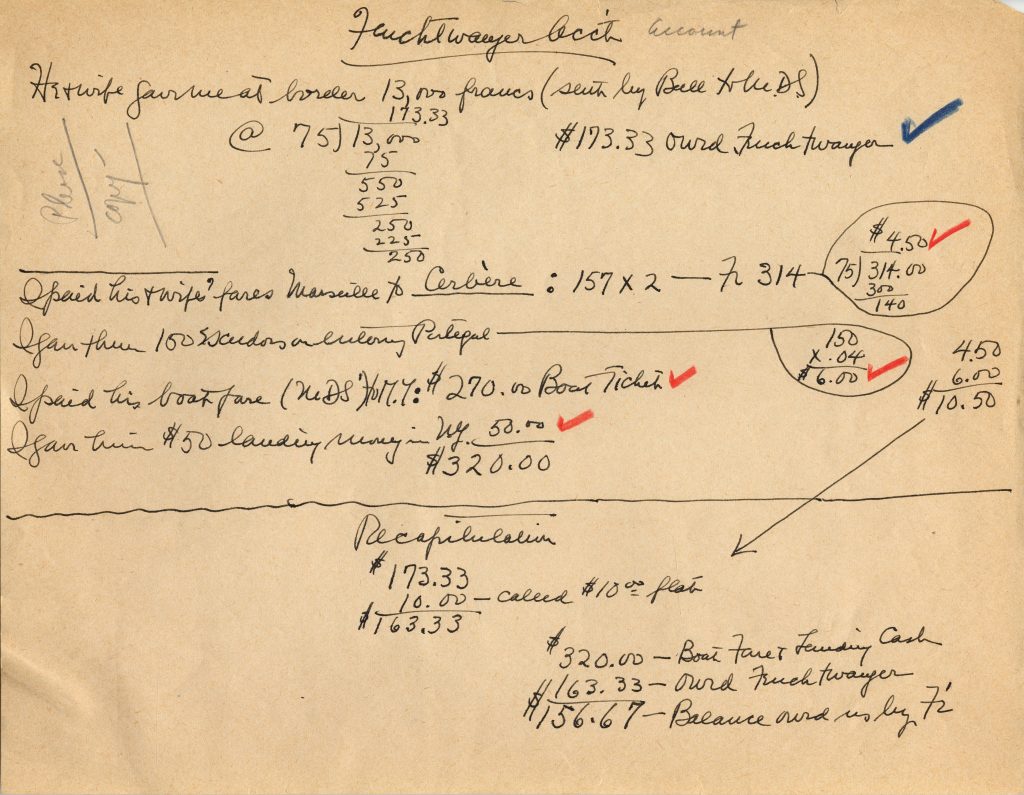 Feuchtwanger Acct. Account
He & wife gave me at border 13,000 francs (sent by Bull to M.D.S)
173.33
@ 75)13,000
75
550
525
250
225
250
$173.33 owed Feuchtwanger
Please
copy
I paid his & wife's fares Marseille to Cerbère : 157 x 2 — Fr 314
$4.50
75)314.00
300
140
I gave them 150 Escudos on entering Portugal
150
x .04
$6.00
4.50
6.00
$10.50
I paid his boat fare (MDS to N.Y.: $270.00 Boat Ticket
I gave him $50 landing money in NY. 50.00
$320.00
Recapitulation
$173.33
10.00 — called $10.00 flat
$163.33
$320.00 — Boat Fare & Landing Cash
$163.33 — owed Feuchtwanger
$156.67 — Balance owed us by F.